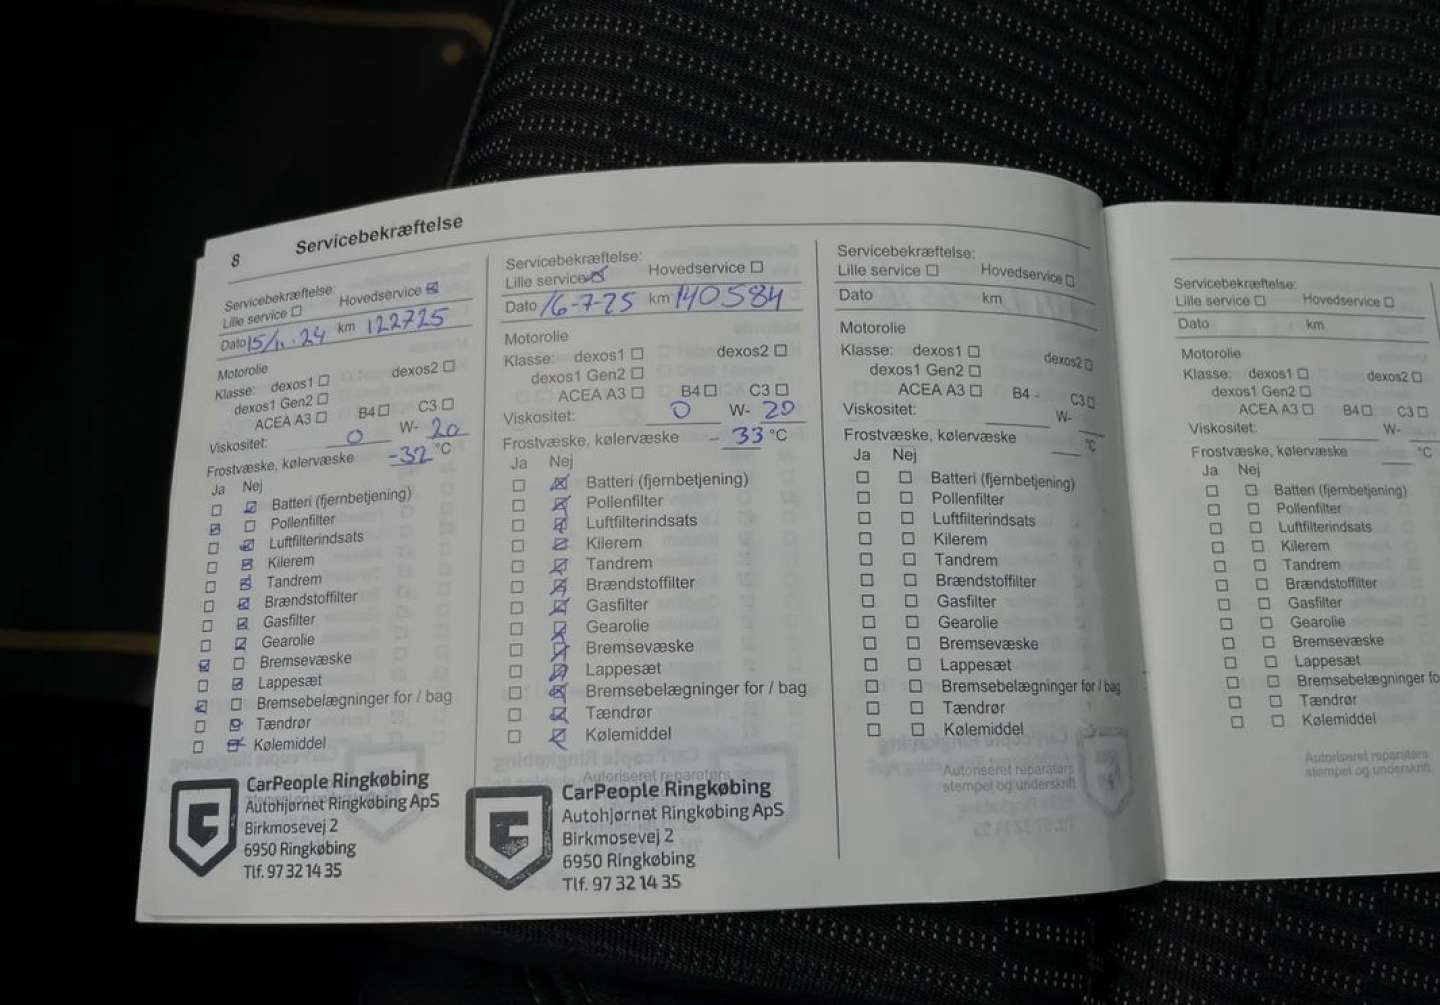 8 Servicebekræftelse
Servicebekræftelse:
Lille service ☐ Hovedservice ☒
Dato 15/11-24 km 122725
Motorolie
Klasse: dexos1 ☐ dexos2 ☐
dexos1 Gen2 ☐
ACEA A3 ☐ B4 ☐ C3 ☐
Viskositet: 0 W- 20
Frostvæske, kølervæske -32 °C
Ja Nej
☐ ☒ Batteri (fjernbetjening)
☒ ☐ Pollenfilter
☐ ☒ Luftfilterindsats
☐ ☒ Kilerem
☐ ☒ Tandrem
☐ ☒ Brændstoffilter
☐ ☒ Gasfilter
☐ ☒ Gearolie
☒ ☐ Bremsevæske
☐ ☒ Lappesæt
☒ ☐ Bremsebelægninger for / bag
☐ ☒ Tændrør
☐ ☒ Kølemiddel
CarPeople Ringkøbing
Autohjørnet Ringkøbing ApS
Birkmosevej 2
6950 Ringkøbing
Tlf. 97 32 14 35
Servicebekræftelse:
Lille service ☒ Hovedservice ☐
Dato 16-7-25 km 140584
Motorolie
Klasse: dexos1 ☐ dexos2 ☐
dexos1 Gen2 ☐
ACEA A3 ☐ B4 ☐ C3 ☐
Viskositet: 0 W- 20
Frostvæske, kølervæske - 33 °C
Ja Nej
☐ ☒ Batteri (fjernbetjening)
☐ ☒ Pollenfilter
☐ ☒ Luftfilterindsats
☐ ☒ Kilerem
☐ ☒ Tandrem
☐ ☒ Brændstoffilter
☐ ☒ Gasfilter
☐ ☒ Gearolie
☐ ☒ Bremsevæske
☐ ☒ Lappesæt
☐ ☒ Bremsebelægninger for / bag
☐ ☒ Tændrør
☐ ☒ Kølemiddel
Autoriseret reparatørs
CarPeople Ringkøbing
Autohjørnet Ringkøbing ApS
Birkmosevej 2
6950 Ringkøbing
Tlf. 97 32 14 35
Servicebekræftelse:
Lille service ☐ Hovedservice ☐
Dato km
Motorolie
Klasse: dexos1 ☐ dexos2 ☐
dexos1 Gen2 ☐
ACEA A3 ☐ B4 - C3 ☐
Viskositet: W-
Frostvæske, kølervæske °C
Ja Nej
☐ ☐ Batteri (fjernbetjening)
☐ ☐ Pollenfilter
☐ ☐ Luftfilterindsats
☐ ☐ Kilerem
☐ ☐ Tandrem
☐ ☐ Brændstoffilter
☐ ☐ Gasfilter
☐ ☐ Gearolie
☐ ☐ Bremsevæske
☐ ☐ Lappesæt
☐ ☐ Bremsebelægninger for / bag
☐ ☐ Tændrør
☐ ☐ Kølemiddel
Autoriseret reparatørs
stempel og underskrift
Servicebekræftelse:
Lille service ☐ Hovedservice ☐
Dato km
Motorolie
Klasse: dexos1 ☐ dexos2 ☐
dexos1 Gen2 ☐
ACEA A3 ☐ B4 ☐ C3 ☐
Viskositet: W-
Frostvæske, kølervæske °C
Ja Nej
☐ ☐ Batteri (fjernbetjening)
☐ ☐ Pollenfilter
☐ ☐ Luftfilterindsats
☐ ☐ Kilerem
☐ ☐ Tandrem
☐ ☐ Brændstoffilter
☐ ☐ Gasfilter
☐ ☐ Gearolie
☐ ☐ Bremsevæske
☐ ☐ Lappesæt
☐ ☐ Bremsebelægninger fo
☐ ☐ Tændrør
☐ ☐ Kølemiddel
Autoriseret reparatørs
stempel og underskrift